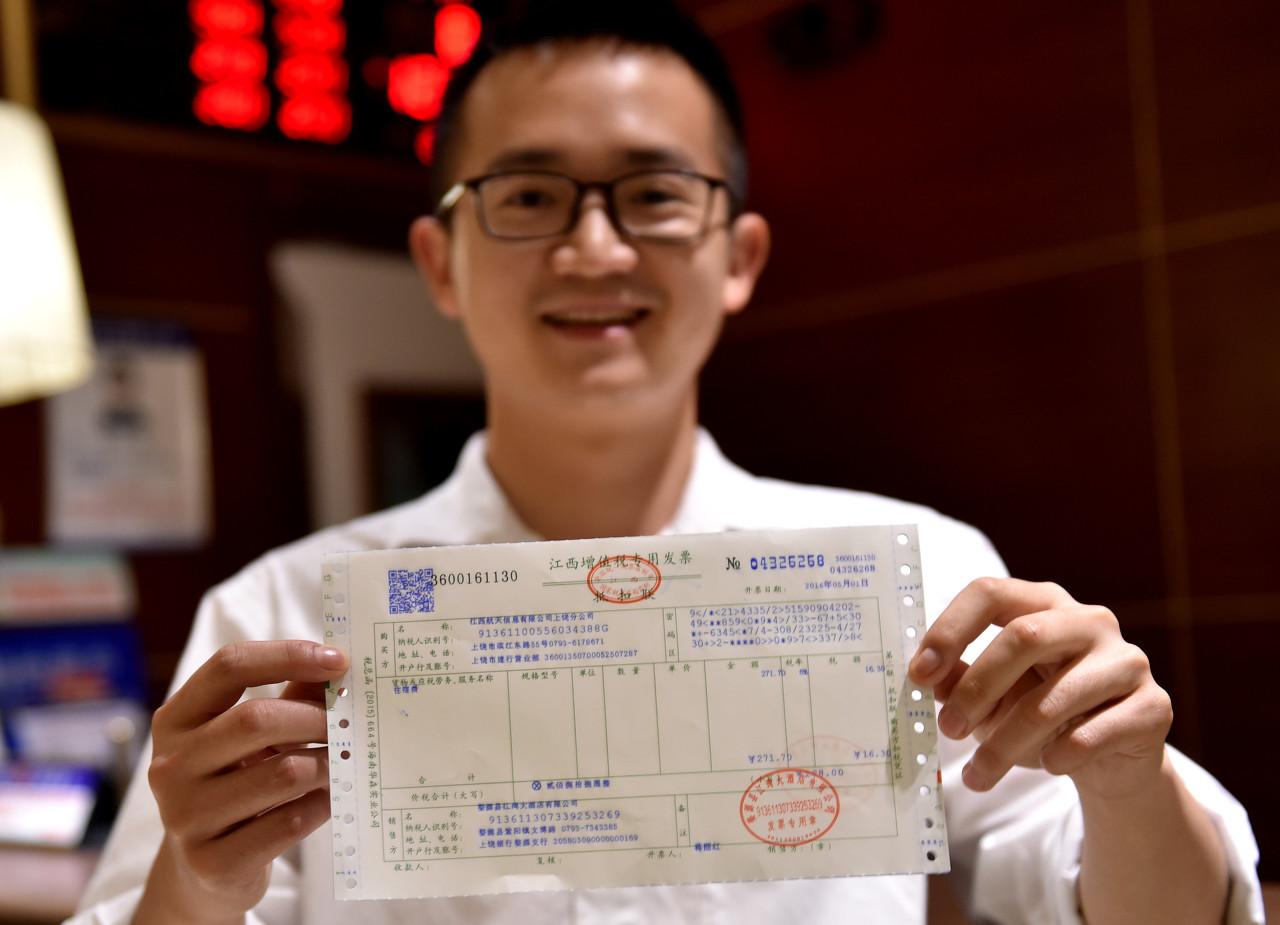 江西增值税专用发票
抵扣联
3600161130
№ 04326268
3600161130
04326268
开票日期: 2016年05月01日
购买方
名 称: 江西航天信息有限公司上饶分公司
纳税人识别号: 91361100556034388G
地 址、电 话: 上饶市滨江东路55号0793-6178671
开户行及账号: 上饶市建行营业部 36001350700052507287
密码区
9</*<21>4335/2>51590904202-
49<**859<0*9*4>/33>-67+5<30
*+-6345<*7/4-308/23225-4/27
30+>2-****0>>0*9>7<>337/>8<
货物或应税劳务、服务名称 规格型号 单位 数 量 单 价 金 额 税率 税 额
住宿费 271.70 6% 16.30
合 计 ¥271.70 ¥16.30
价税合计(大写) ⊗ 贰佰捌拾捌圆整
销售方
名 称: 婺源县江湾大酒店有限公司
纳税人识别号: 913611307339253269
地 址、电 话: 婺源县紫阳镇文博路 0793-7343385
开户行及账号: 上饶银行婺源支行 205803090000000169
备注
收款人: 复核: 开票人: 销售方:(章)
婺源县江湾大酒店有限公司
913611307339253269
发票专用章
税总函〔2015〕664号海南华森实业公司
第二联:抵扣联 购买方扣税凭证